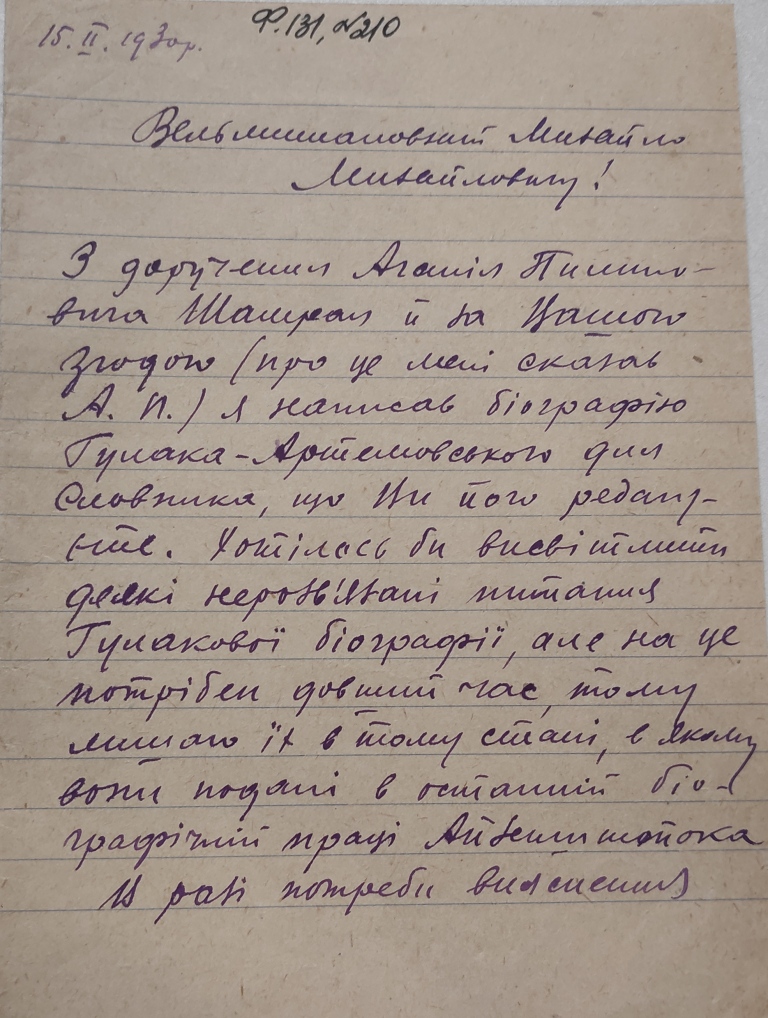 15.II.1930р.
Ф.131, №210
Вельмишановний Михайло
Михайловичу!
З доручення Агапія Пилипо-
вича Шамрая й за Вашою
згодою (про це мені сказав
А. П.) я написав біографію
Гулака-Артемовського для
Словника, що Ви його редагу-
єте. Хотілось би висвітлити
деякі нерозв'язані питання
Гулакової біографії, але на це
потрібен довший час, тому
лишаю їх в тому стані, в якому
вони подані в останній біо-
графічній праці Айзенштока
В разі потреби вияснення